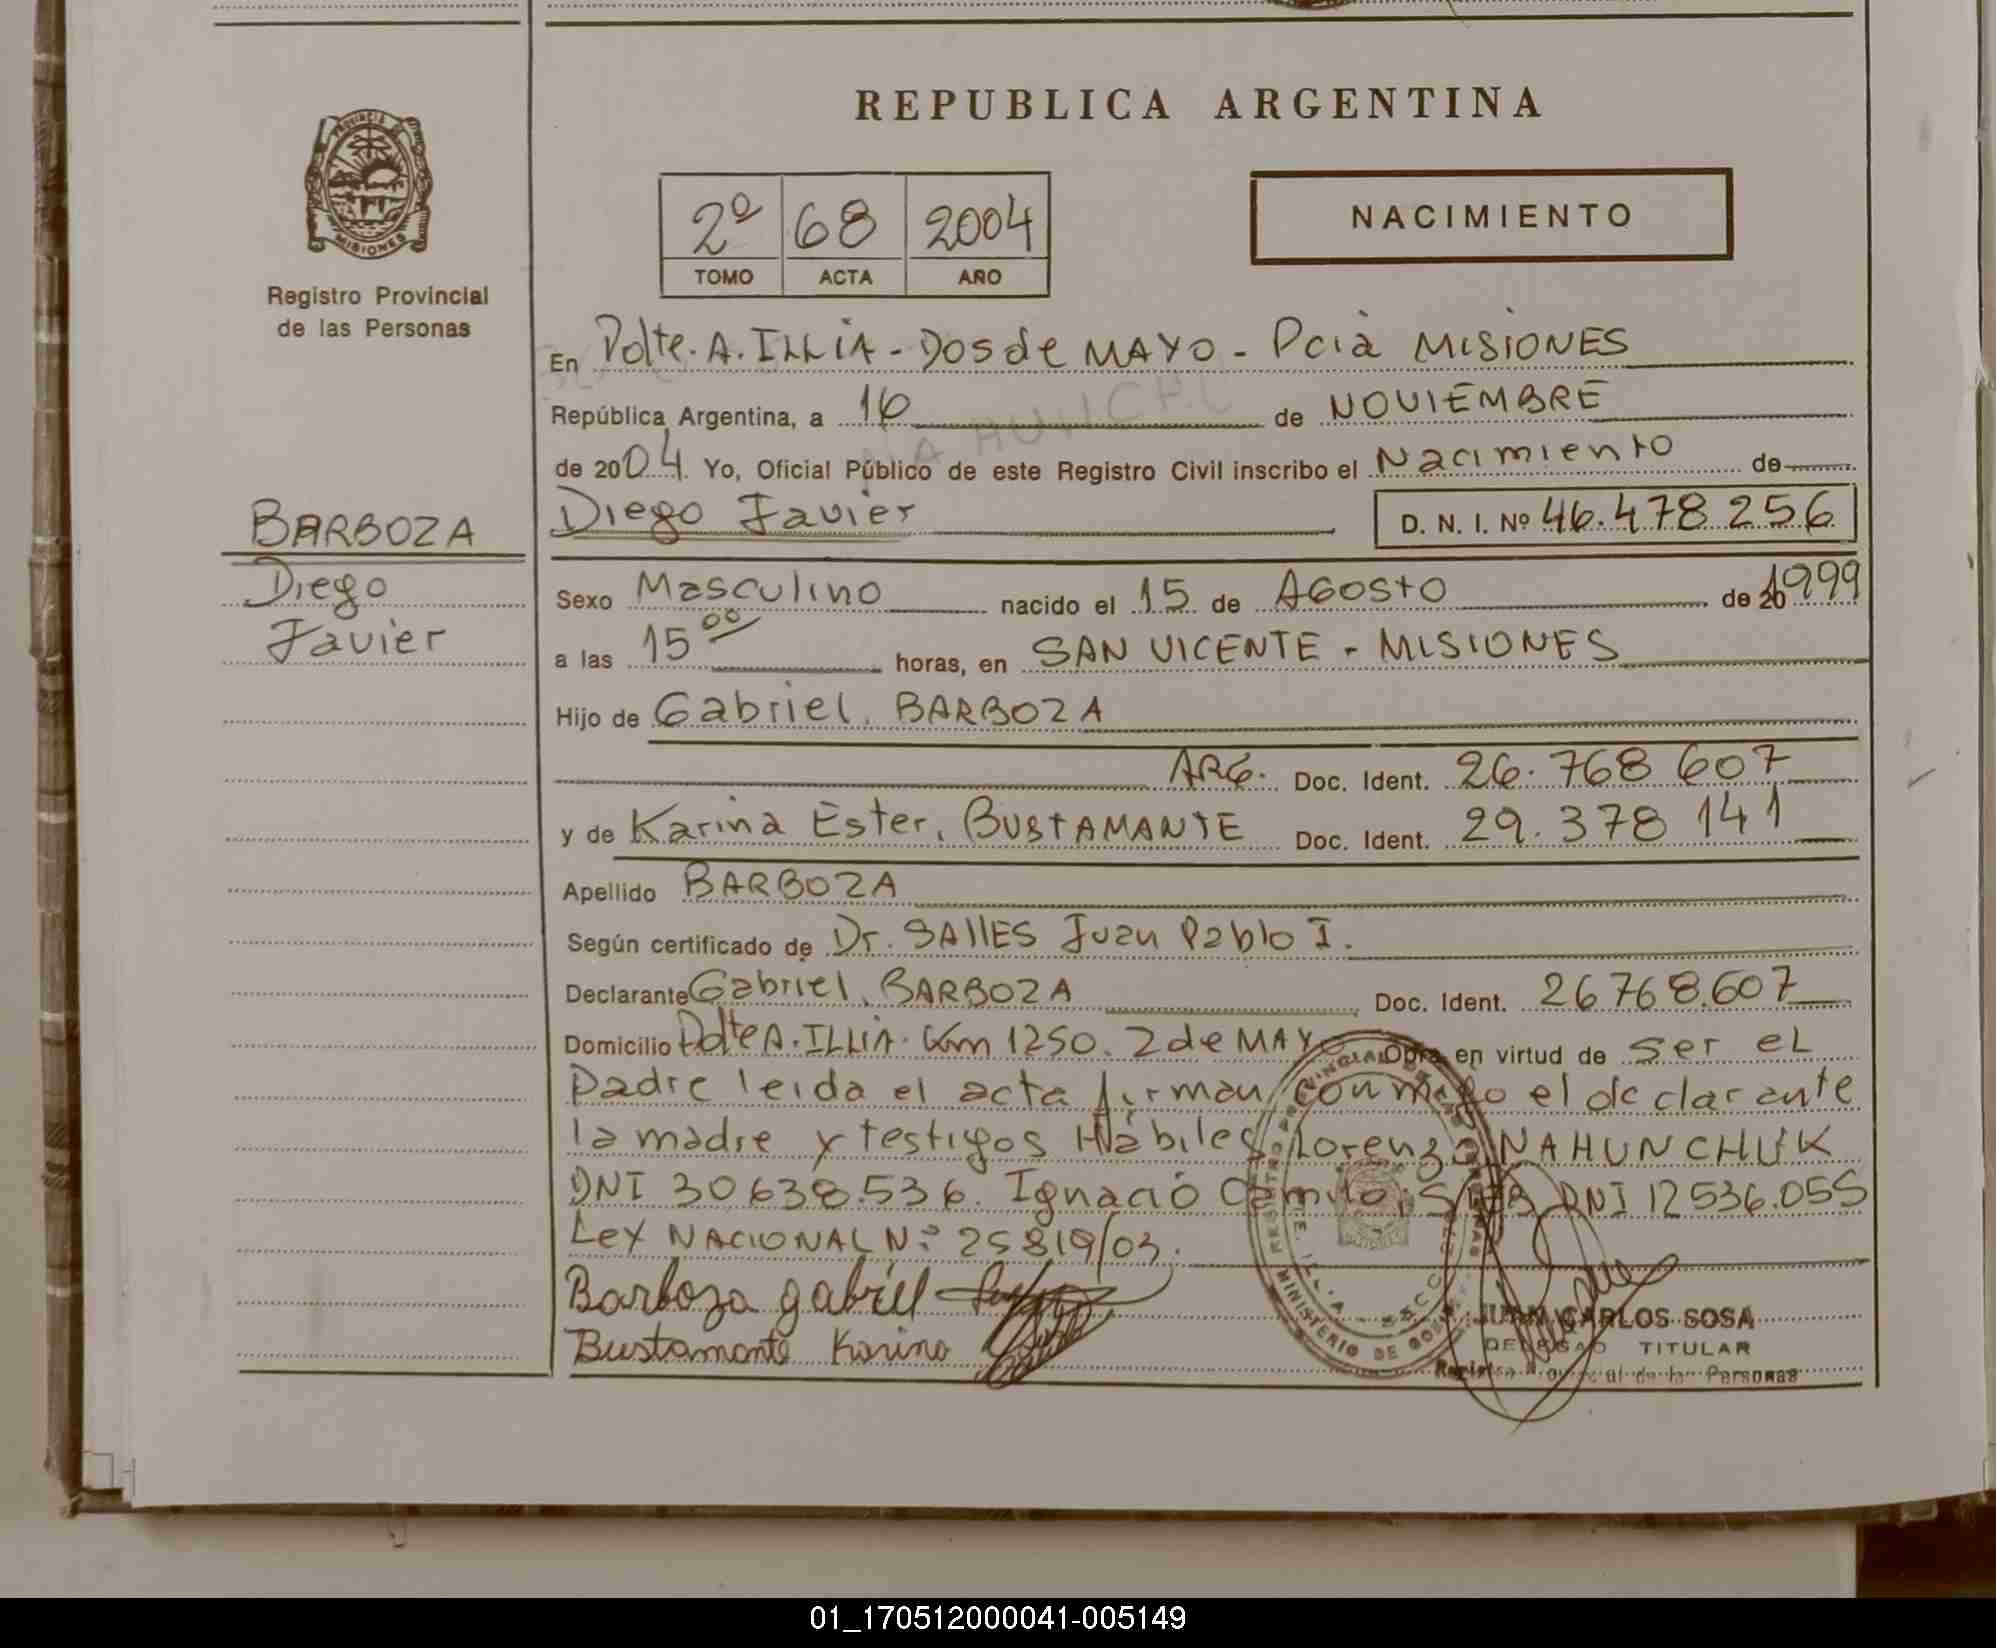 REPUBLICA ARGENTINA
PROVINCIA DE
MISIONES
Registro Provincial
de las Personas
2º 68 2004
TOMO ACTA AÑO
NACIMIENTO
En Pdte. A. ILLIA - DOS de MAYO - Pcia MISIONES
República Argentina, a 16 de NOVIEMBRE
de 2004. Yo, Oficial Público de este Registro Civil inscribo el Nacimiento de
BARBOZA
Diego
Javier
Diego Javier D. N. I. Nº 46.478 256
Sexo Masculino nacido el 15 de AGOSTO de 20 1999
a las 15 00 horas, en SAN VICENTE - MISIONES
Hijo de Gabriel. BARBOZA
ARG. Doc. Ident. 26.768 607
y de Karina Ester. BUSTAMANTE Doc. Ident. 29.378 141
Apellido BARBOZA
Según certificado de Dr. SALLES Juan Pablo I.
Declarante Gabriel. BARBOZA Doc. Ident. 26768.607
Domicilio Pdte A. ILLIA. Km 1250. 2 de MAYO Obra en virtud de ser el
padre leida el acta firman conmigo el declarante
la madre y testigos Hábiles Lorenzo NAHUNCHUK
DNI 30638.536. Ignacio DNI 12536.055
Ley NACIONAL Nº 25819/03.
Barboza gabriel
Bustamante Karina
MINISTERIO DE
JUAN CARLOS SOSA
TITULAR
Personas
01_170512000041-005149